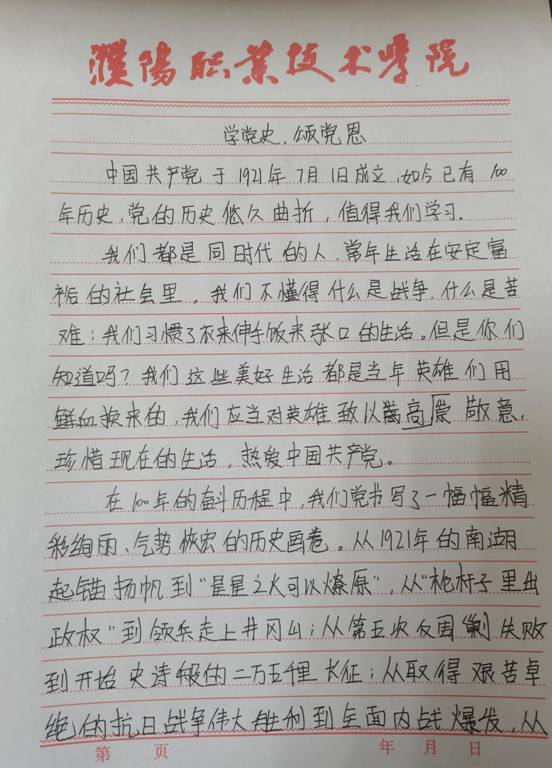 濮阳职业技术学院
学党史，颂党恩
中国共产党于1921年7月1日成立，如今已有100
年历史，党的历史悠久曲折，值得我们学习.
我们都是同时代的人，常年生活在安定富
裕的社会里。我们不懂得什么是战争，什么是苦
难；我们习惯了衣来伸手饭来张口的生活。但是你们
知道吗？我们这些美好生活都是当年英雄们用
鲜血换来的，我们应当对英雄致以崇高 敬意，
珍惜现在的生活，热爱中国共产党。
在100年的奋斗历程中，我们党书写了一幅幅精
彩绚丽、气势恢宏的历史画卷。从1921年的南湖
起锚扬帆到“星星之火可以燎原”，从“枪杆子里出
政权”到领兵走上井冈山；从第五次反围剿失败
到开始史诗般的二万五千里长征；从取得艰苦卓
绝的抗日战争伟大胜利到全面内战爆发，从
第 页 年 月 日